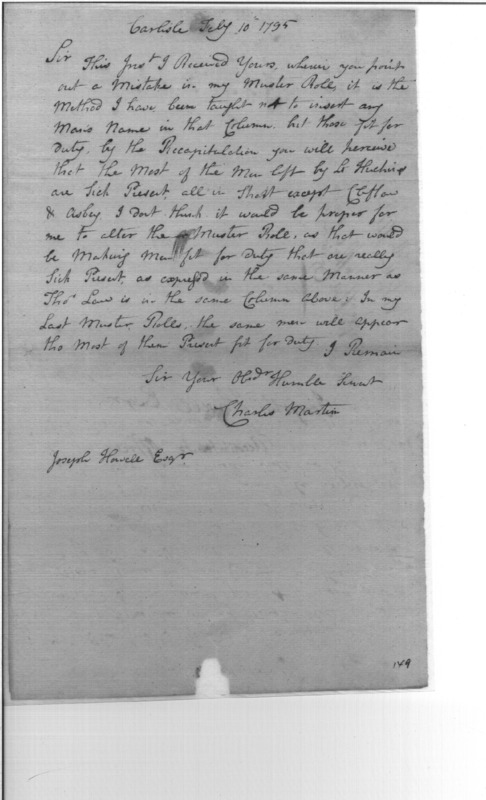 Carlisle Feby 10th 1795
Sir This Inst I Received Yours, wherein you point
out a Mistake in my Muster Roll, it is the
Method I have been taught not to insert any
Mans Name in that Column but those fit for
Duty, by the Recapitulation you will perceive
that the Most of the Men left by Lt
are Sick Present, all in Short except
& Asbey I Dont think it would be proper for
me to alter the Muster Roll, as that would
be Making Men fit for Duty that are really
Sick Present, as in the same Manner as
Thos Law is in the same Column above, In my
Last Muster Rolls, the same men will appear
tho Most of them Present fit for Duty. I Remain
Sir Your Obdt Humble Servt
Charles Martin
Joseph Howell Esqr
149